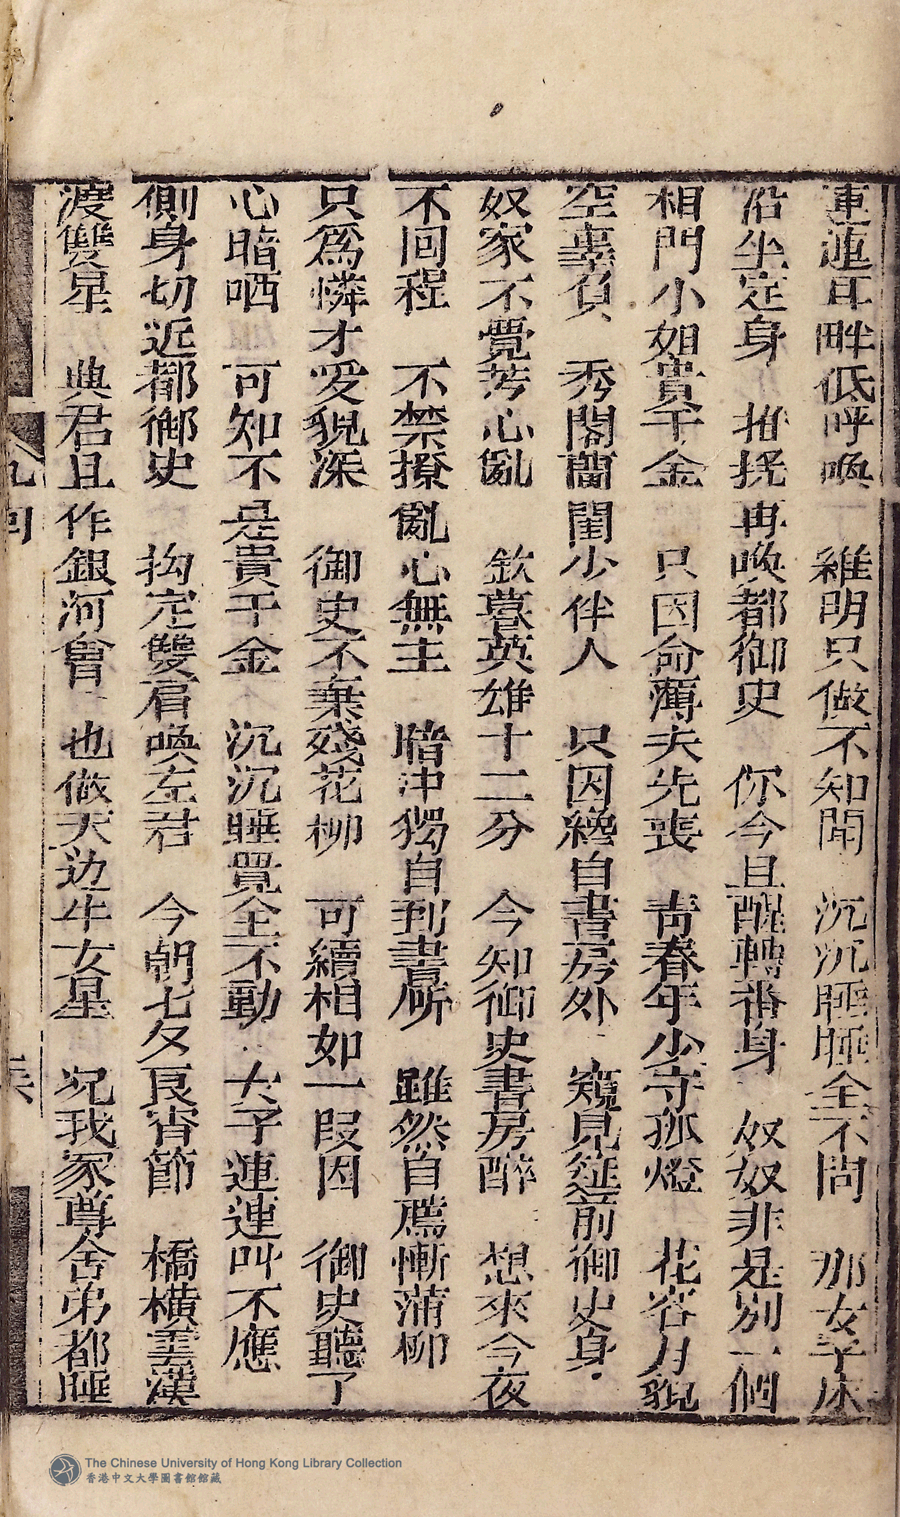 連連耳畔低呼喚 維明只做不知聞 沉沉睡睡全不問 那女子床
沿坐定身 推挠再喚都御史 你今且醒轉番身 奴奴非是別一個
相門小如貴千金 只因命薄夫先丧 青春年少守孤燈 花容月貌
空辜負 秀閣蘭閨少伴人 只因纔自書房外 窺見筵前御史身
奴家不覺芳心亂 欽慕英雄十二分 今知御史書房醉 想來今夜
不回程 不禁撩亂心無主 暗中獨自到書所 雖然自薦慚蒲柳
只為憐才愛貌深 御史不棄殘花柳 可續相如一段因 御史聽了
心暗哂 可知不是貴千金 沉沉睡覺全不動 女子連連叫不應
側身切近都御史 拘定雙肩喚左君 今朝七夕良宵節 橋橫雲漢
渡雙星 與君且作銀河會 也做天边牛女星 况我家尊舍弟都睡
九回
The Chinese University of Hong Kong Library Collection
香港中文大學圖書館館藏